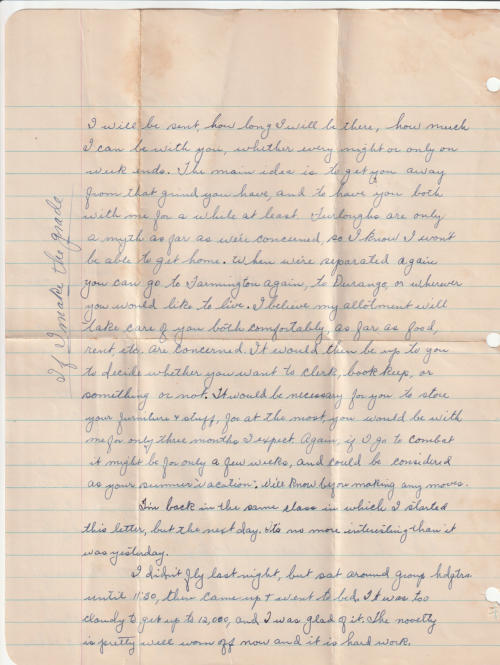 I will be sent, how long I will be there, how much
I can be with you, whether every night or only on
week ends. The main idea is to get you away
from that grind you have, and to have you both
with me for a while at least. Furloughs are only
a myth as far as we're concerned, so I know I won't
be able to get home. When we're separated again
you can go to Farmington again, to Durango, or wherever
you would like to live. I believe my allotment will
take care of you both comfortably, as far as food,
rent, etc. are concerned. It would then be up to you
to decide whether you want to clerk, book keep, or
something or not. It would be necessary for you to store
your furniture & stuff, for at the most, you would be with
me for only three months I expect. Again, if I go to combat
it might be for only a few weeks, and could be considered
as your summer vacation. Will know before making any moves.
I'm back in the same class in which I started
this letter, but the next day. Its no more interesting than it
was yesterday.
I didn't fly last night, but sat around group hdqtrs.
until 11:30, then came up & went to bed. It was too
cloudy to get up to 12,000, and I was glad of it. The novelty
is pretty well worn off now and it is hard work.
If I make the grade